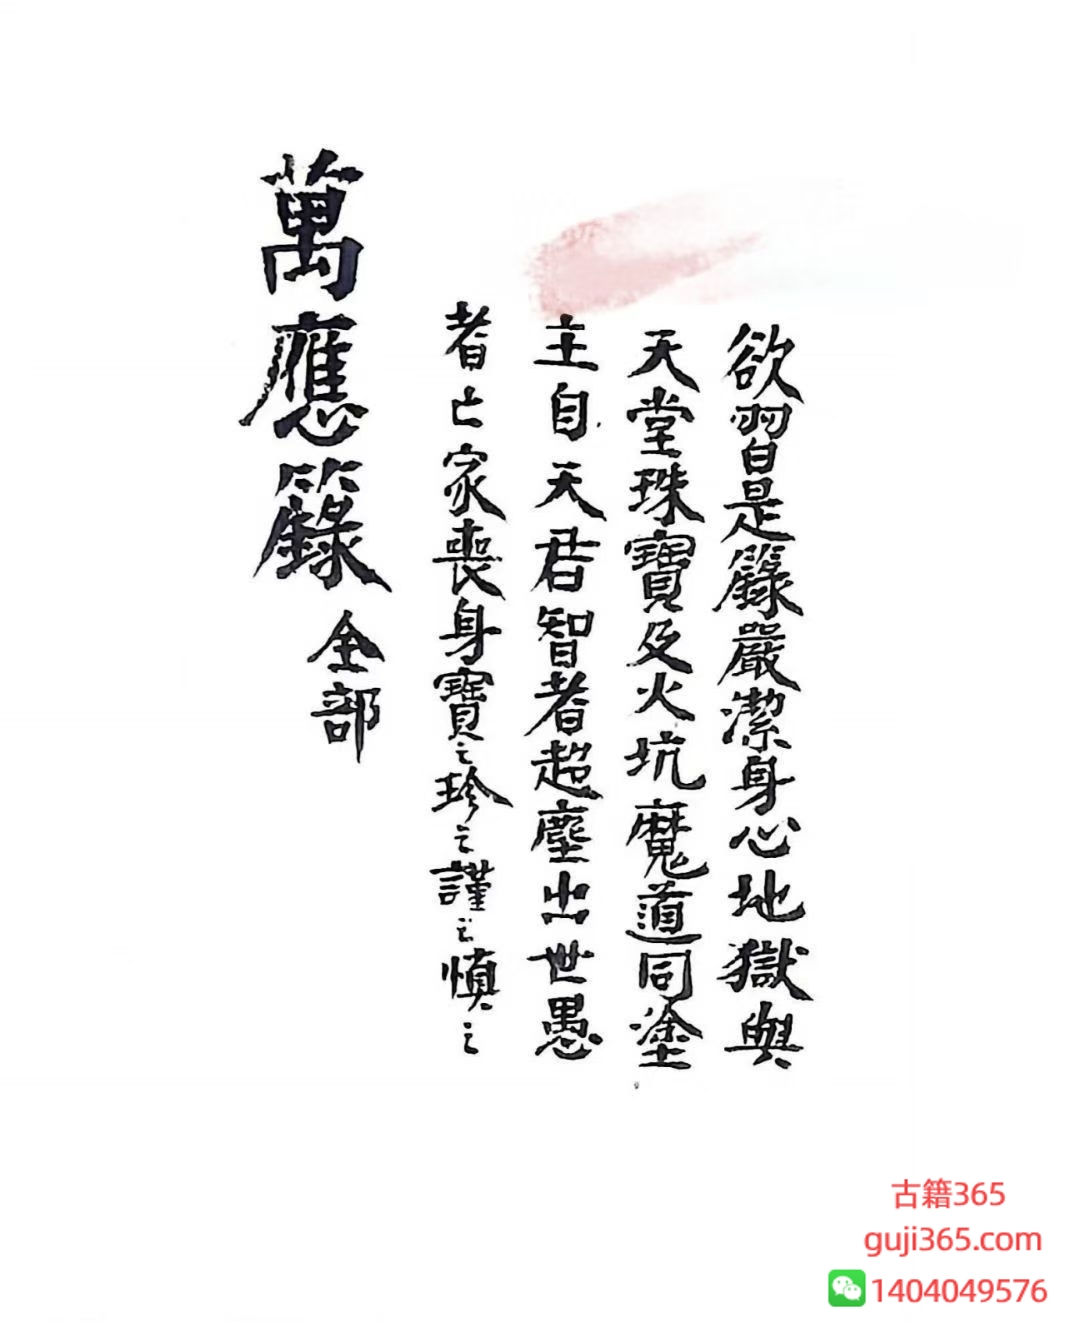 欲習是籙嚴潔身心地獄與
天堂珠寶及火坑魔道同塗
主自天君智者超塵出世愚
者亡家喪身寶之珍之謹之慎之
萬應籙全部
古籍365
guji365.com
1404049576